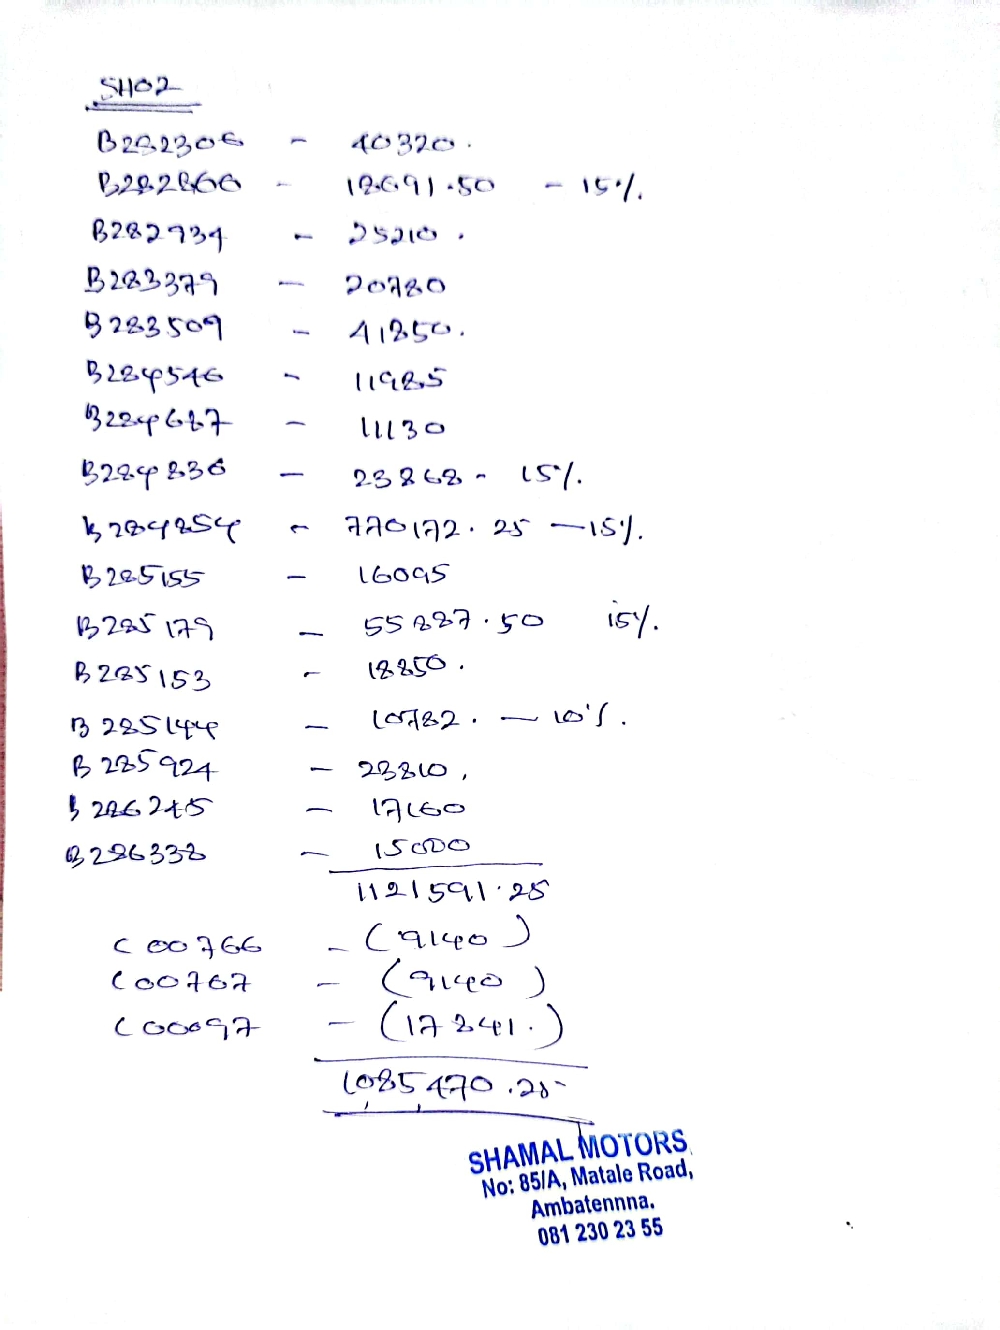 SH02
B282306 - 40320.
B282866 - 18691.50 - 15%.
B282934 - 25210.
B283379 - 20780
B283509 - 41850.
B284546 - 11985
B284687 - 11130
B284836 - 23868 - 15%.
B284854 - 770172.25 - 15%.
B285155 - 16095
B285179 - 55887.50 15%.
B285153 - 18850.
B285144 - 10782. - 10%.
B285924 - 23810,
B286245 - 17160
B286338 - 15000
1121591.25
C00766 - (9140)
C00767 - (9140)
C00097 - (17841.)
1,085,470.25
SHAMAL MOTORS
No: 85/A, Matale Road,
Ambatennna.
081 230 23 55